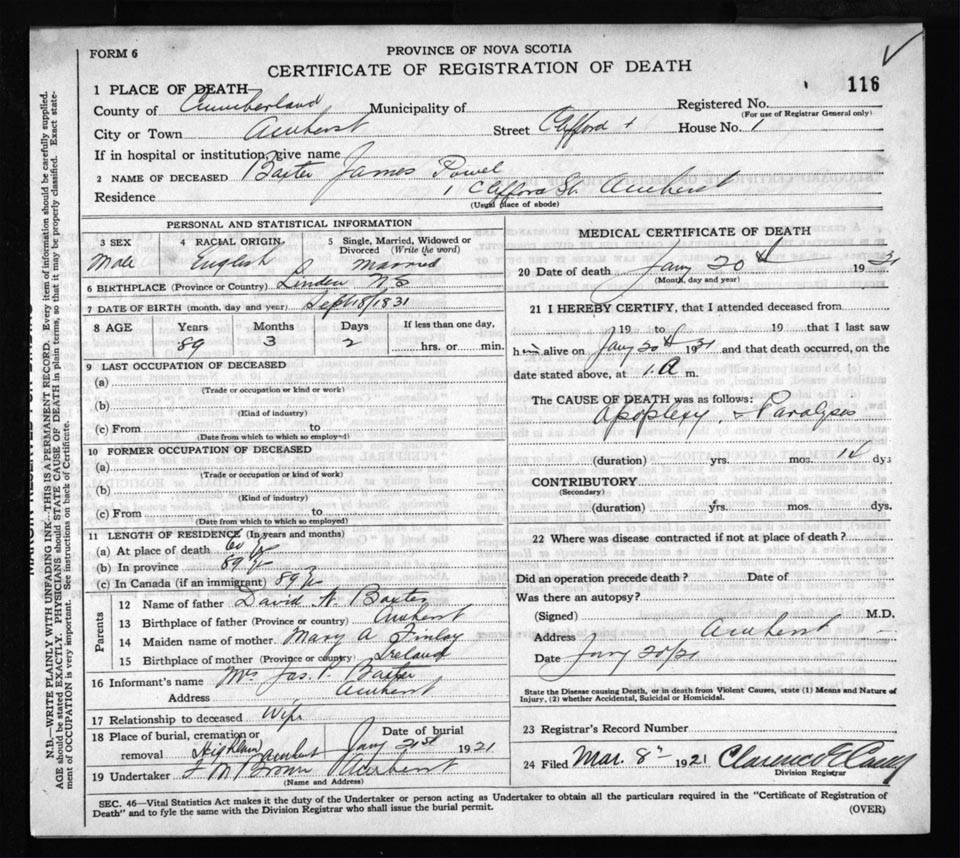 FORM 6
PROVINCE OF NOVA SCOTIA
CERTIFICATE OF REGISTRATION OF DEATH
116
1 PLACE OF DEATH
County of Cumberland Municipality of Registered No.
(For use of Registrar General only)
City or Town Amherst Street Clifford St House No. 1
If in hospital or institution, give name
2 NAME OF DECEASED Baxter James Powel
Residence 1 Clifford St. Amherst
(Usual place of abode)
PERSONAL AND STATISTICAL INFORMATION
3 SEX 4 RACIAL ORIGIN 5 Single, Married, Widowed or Divorced (Write the word)
Male English Married
6 BIRTHPLACE (Province or Country) Linden N S
7 DATE OF BIRTH (month, day and year) Sept 18/1831
8 AGE Years Months Days If less than one day,
89 3 2 hrs. or min.
9 LAST OCCUPATION OF DECEASED
(a)
(Trade or occupation or kind or work)
(b)
(Kind of industry)
(c) From to
(Date from which to which so employed)
10 FORMER OCCUPATION OF DECEASED
(a)
(Trade or occupation or kind of work)
(b)
(Kind of industry)
(c) From to
(Date from which to which so employed)
11 LENGTH OF RESIDENCE (In years and months)
(a) At place of death 60 yr
(b) In province 89 yr
(c) In Canada (if an immigrant) 89 yr
Parents
12 Name of father David W. Baxter
13 Birthplace of father (Province or country) Amherst
14 Maiden name of mother Mary A Finlay
15 Birthplace of mother (Province or country) Ireland
16 Informant's name Mrs Jas. P. Baxter
Address Amherst
17 Relationship to deceased Wife
18 Place of burial, cremation or removal Highland Amherst Date of burial Jany 21st 1921
19 Undertaker F M Brown Amherst
(Name and Address)
MEDICAL CERTIFICATE OF DEATH
20 Date of death Jany 20th 19
(Month, day and year)
21 I HEREBY CERTIFY, that I attended deceased from
19 to 19 that I last saw
him alive on Jany 20th 1921 and that death occurred, on the
date stated above, at 1. A m.
The CAUSE OF DEATH was as follows:
Apoplexy & Paralysis
(duration) yrs. mos. dys
CONTRIBUTORY
(Secondary)
(duration) yrs. mos. dys.
22 Where was disease contracted if not at place of death?
Did an operation precede death? Date of
Was there an autopsy?
(Signed) M.D.
Address Amherst
Date Jany 20/21
State the Disease causing Death, or in death from Violent Causes, state (1) Means and Nature of
Injury, (2) whether Accidental, Suicidal or Homicidal.
23 Registrar's Record Number
24 Filed Mar. 8th 1921 Clarence E Casey
Division Registrar
SEC. 46—Vital Statistics Act makes it the duty of the Undertaker or person acting as Undertaker to obtain all the particulars required in the "Certificate of Registration of
Death" and to fyle the same with the Division Registrar who shall issue the burial permit.
(OVER)
N.B.—WRITE PLAINLY WITH UNFADING INK—THIS IS A PERMANENT RECORD. Every item of information should be carefully supplied.
AGE should be stated EXACTLY. PHYSICIANS should STATE CAUSE OF DEATH in plain terms, so that it may be properly classified. Exact statement
of OCCUPATION is very important. See instructions on back of Certificate.